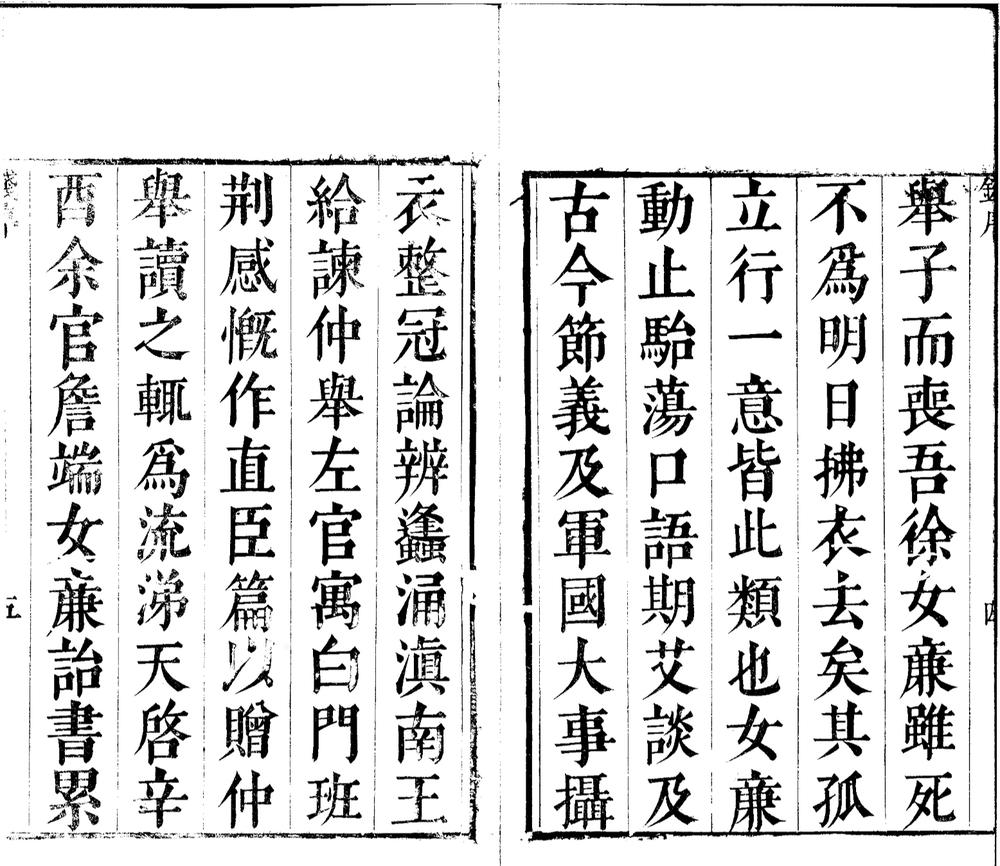 舉子而喪吾徐女廉雖死
不爲明日拂衣去矣其孤
立行一意皆此類也女廉
動止駘蕩口語期艾談及
古今節義及軍國大事攝
衣整冠論辨蠭涌滇南王
給諫仲舉左官寓白門班
荆感慨作直臣篇以贈仲
舉讀之輒爲流涕天啓辛
酉余官詹端女廉詒書累
四
五